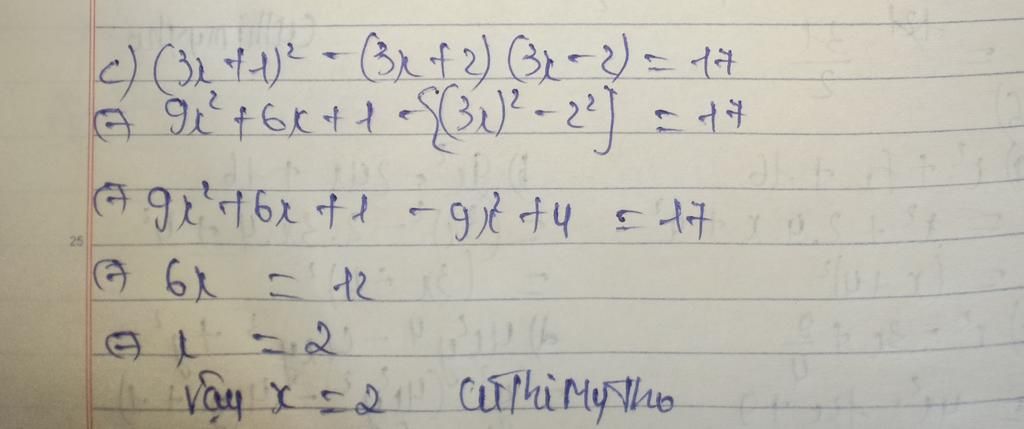 c) (3x + 1)² - (3x + 2) (3x - 2) = 17
⇔ 9x² + 6x + 1 - [(3x)² - 2²] = 17
⇔ 9x² + 6x + 1 - 9x² + 4 = 17
25
⇔ 6x = 12
⇔ x = 2
Vậy x = 2 CuThiMyTho